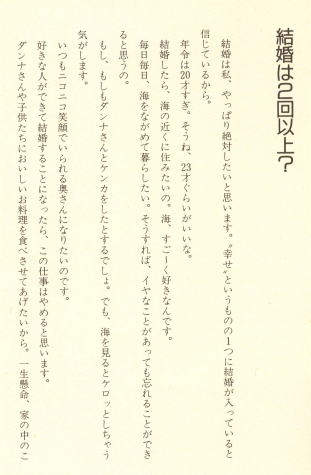 結婚は2回以上?
結婚は私、やっぱり絶対したいと思います。〝幸せ〟というものの1つに結婚が入っていると
信じているから。
年令は20才すぎ。そうね、23才ぐらいがいいな。
結婚したら、海の近くに住みたいの。海、すご〜く好きなんです。
毎日毎日、海をながめて暮らしたい。そうすれば、イヤなことがあっても忘れることができ
ると思うの。
もし、もしもダンナさんとケンカをしたとするでしょ。でも、海を見るとケロッとしちゃう
気がします。
いつもニコニコ笑顔でいられる奥さんになりたいのです。
好きな人ができて結婚することになったら、この仕事はやめると思います。
ダンナさんや子供たちにおいしいお料理を食べさせてあげたいから。一生懸命、家の中のこ